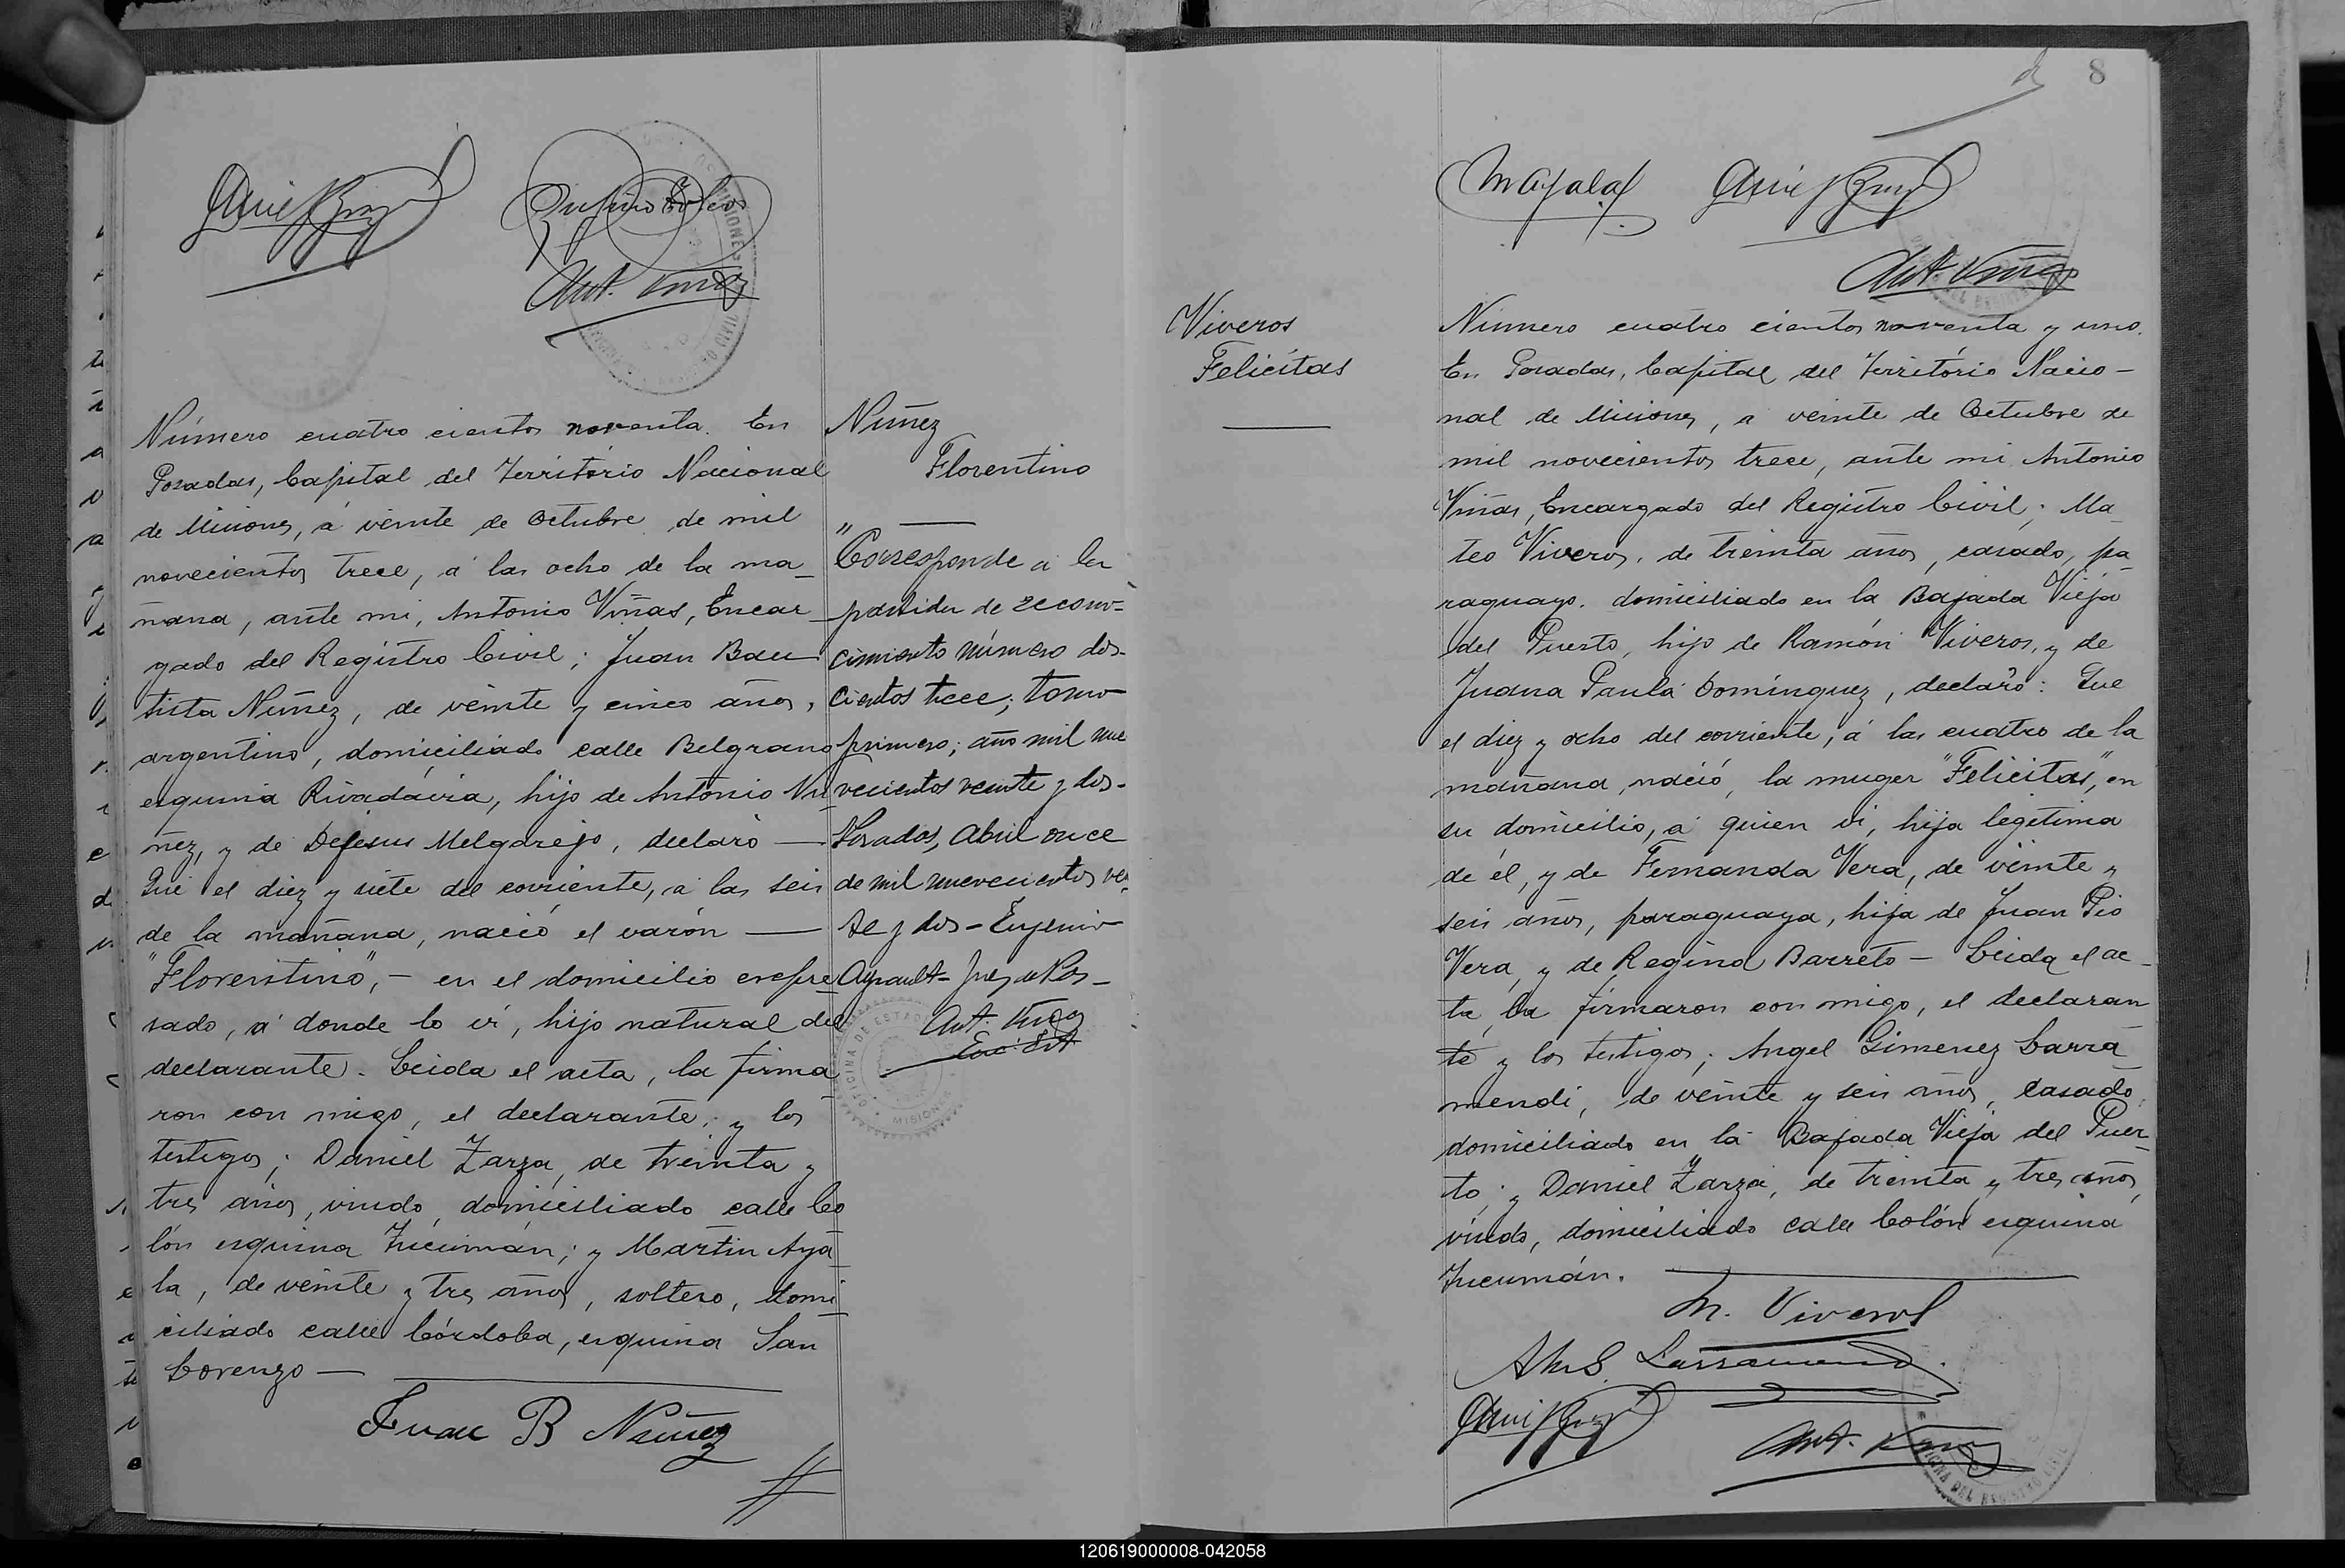 Ant. Viñas
Número cuatro cientos noventa. En
Posadas, Capital del Território Nacional
de Misiones, á veinte de Octubre de mil
novecientos trece, á las ocho de la ma_
ñana, ante mi, Antonio Viñas, Encar_
gado del Registro Civil; Juan Bau_
tista Nuñez, de veinte y cinco años,
argentino, domiciliado calle Belgrano
esquina Rivadávia, hijo de António Nu
ñez, y de Dejesus Melgarejo, declaró —
Que el diez y siete del corriente, á las seis
de la mañana, nació el varón —
"Florentino", - en el domicilio expre_
sado, á donde lo ví, hijo natural del
declarante. Leida el acta, la firma_
ron con migo, el declarante; y los
testigos; Daniel Zarza, de treinta y
tres años, viudo, domiciliado calle Co
lón esquina Tucumán; y Martin Aya_
la, de veinte y tres años, soltero, domi_
ciliado calle Córdoba, esquina San
Lorenzo —
Juan B Nuñez
Nuñez
Florentino
"Corresponde á la
partida de recono-
cimiento número dos-
cientos trece; tomo
primero; año mil nue
vecientos veinte y dos-
Posadas, Abril once
de mil nuevecientos vein
te y dos - Eugenio
Ayrault- Juez de Paz-
Ant. Viñas
OFICINA DE ESTADO
MISIONES
8
M Ayala
Ant. Viñas
Viveros
Felicítas
Número cuatro cientos noventa y uno.
En Posadas, Capital del Território Nacio-
nal de Misiones, a veinte de Octubre de
mil novecientos trece, ante mi Antonio
Viñas, Encargado del Registro Civil; Ma_
teo Viveros, de treinta años, casado, pa_
raguayo, domiciliado en la Bajada Vieja
del Puerto, hijo de Ramón Viveros, y de
Juana Paula Domínguez, declaró: Que
el diez y ocho del corriente, á las cuatro de la
mañana, nació, la muger "Felicitas", en
su domicilio, á quien ví, hija legítima
de él, y de Fernanda Vera, de veinte y
seis años, paraguaya, hija de Juan Pio
Vera, y de Regina Barreto - Leida el ac_
ta, la firmaron con migo, el declaran
te y los testigos; Angel Gimenez Larra_
mendi, de veinte y seis años, casado,
domiciliado en la Bajada Vieja del Puer_
to; y Daniel Zarza, de treinta y tres años,
viudo, domiciliado calle Colón esquina
Tucumán.
M. Viveros
Larramendi
Ant. Viñas
OFICINA DEL REGISTRO CIVIL
120619000008-042058